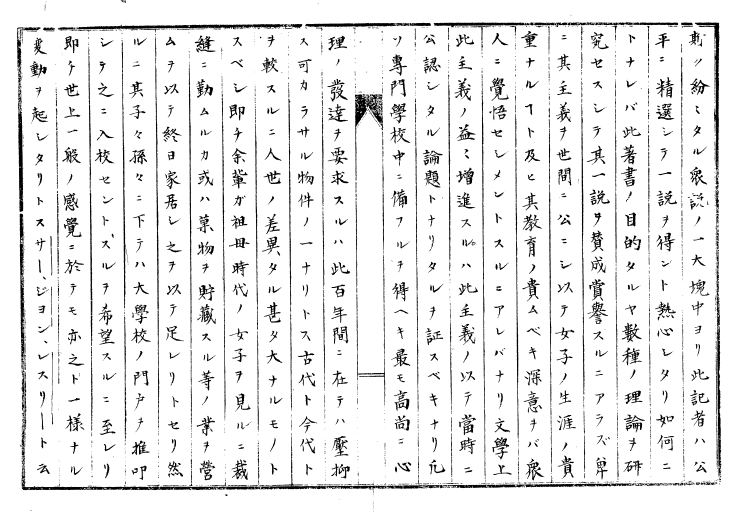 夷ノ紛々タル衆説ノ一大塊中ヨリ此記者ハ公
平ニ精選シテ一説ヲ得ント熱心シタリ如何ニ
トナレバ此著書ノ目的タルヤ数種ノ理論ヲ研
究セスシテ其一説ヲ賛成賞誉スルニアラズ単
ニ其主義ヲ世間ニ公ニシ以テ女子ノ生涯ノ貴
重ナルヿト及ヒ其教育ノ貴ムベキ深意ヲバ衆
人ニ覚悟セシメントスルニアレバナリ文學上
此主義ノ益々増進スルハ此主義ノ以テ當時ニ
公認シタル論題トナリタルヲ証スベキナリ凡
ソ専門學校中ニ備フルヲ得ヘキ最モ高尚ニ心
理ノ發達ヲ要求スルハ此百年間ニ在テハ壓抑
ス可カラサル物件ノ一ナリトス古代ト今代ト
ヲ較スルニ人世ノ差異タル甚タ大ナルモノト
スベシ即チ余輩ガ祖母時代ノ女子ヲ見ルニ裁
縫ニ勤ムルカ或ハ菓物ヲ貯藏スル等ノ業ヲ營
ムヲ以テ終日家居シ之ヲ以テ足レリトセリ然
ルニ其子々孫々ニ下テハ大學校ノ門戸ヲ推叩
シテ之ニ入校セントスルヲ希望スルニ至レリ
即チ世上一般ノ感覺ニ於テモ亦之ト一様ナル
変動ヲ起シタリトスサー、ジヨン、レスリート云